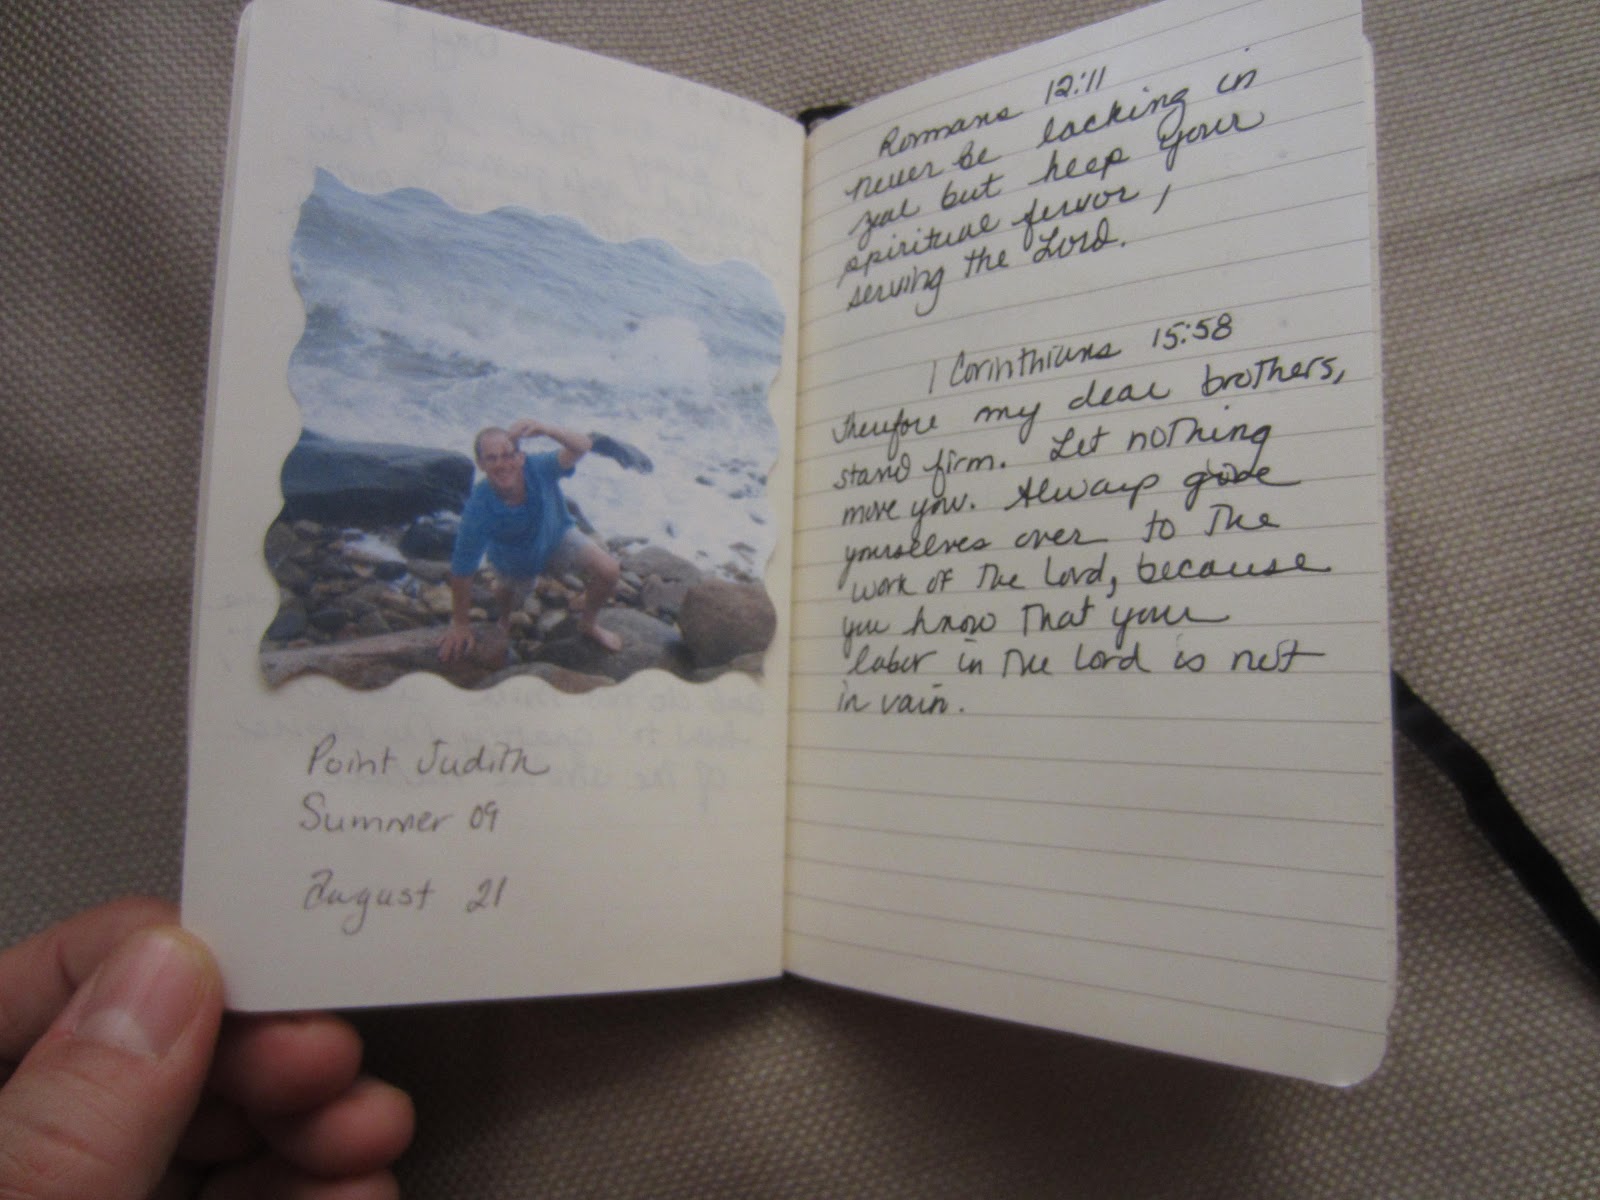 Point Judith
Summer 09
August 21
Romans 12:11
never be lacking in
zeal but keep your
spiritual fervor,
serving the Lord.
1 Corinthians 15:58
Therefore my dear brothers,
stand firm. Let nothing
move you. Always give
yourselves over to the
work of the Lord, because
you know that your
labor in the Lord is not
in vain.